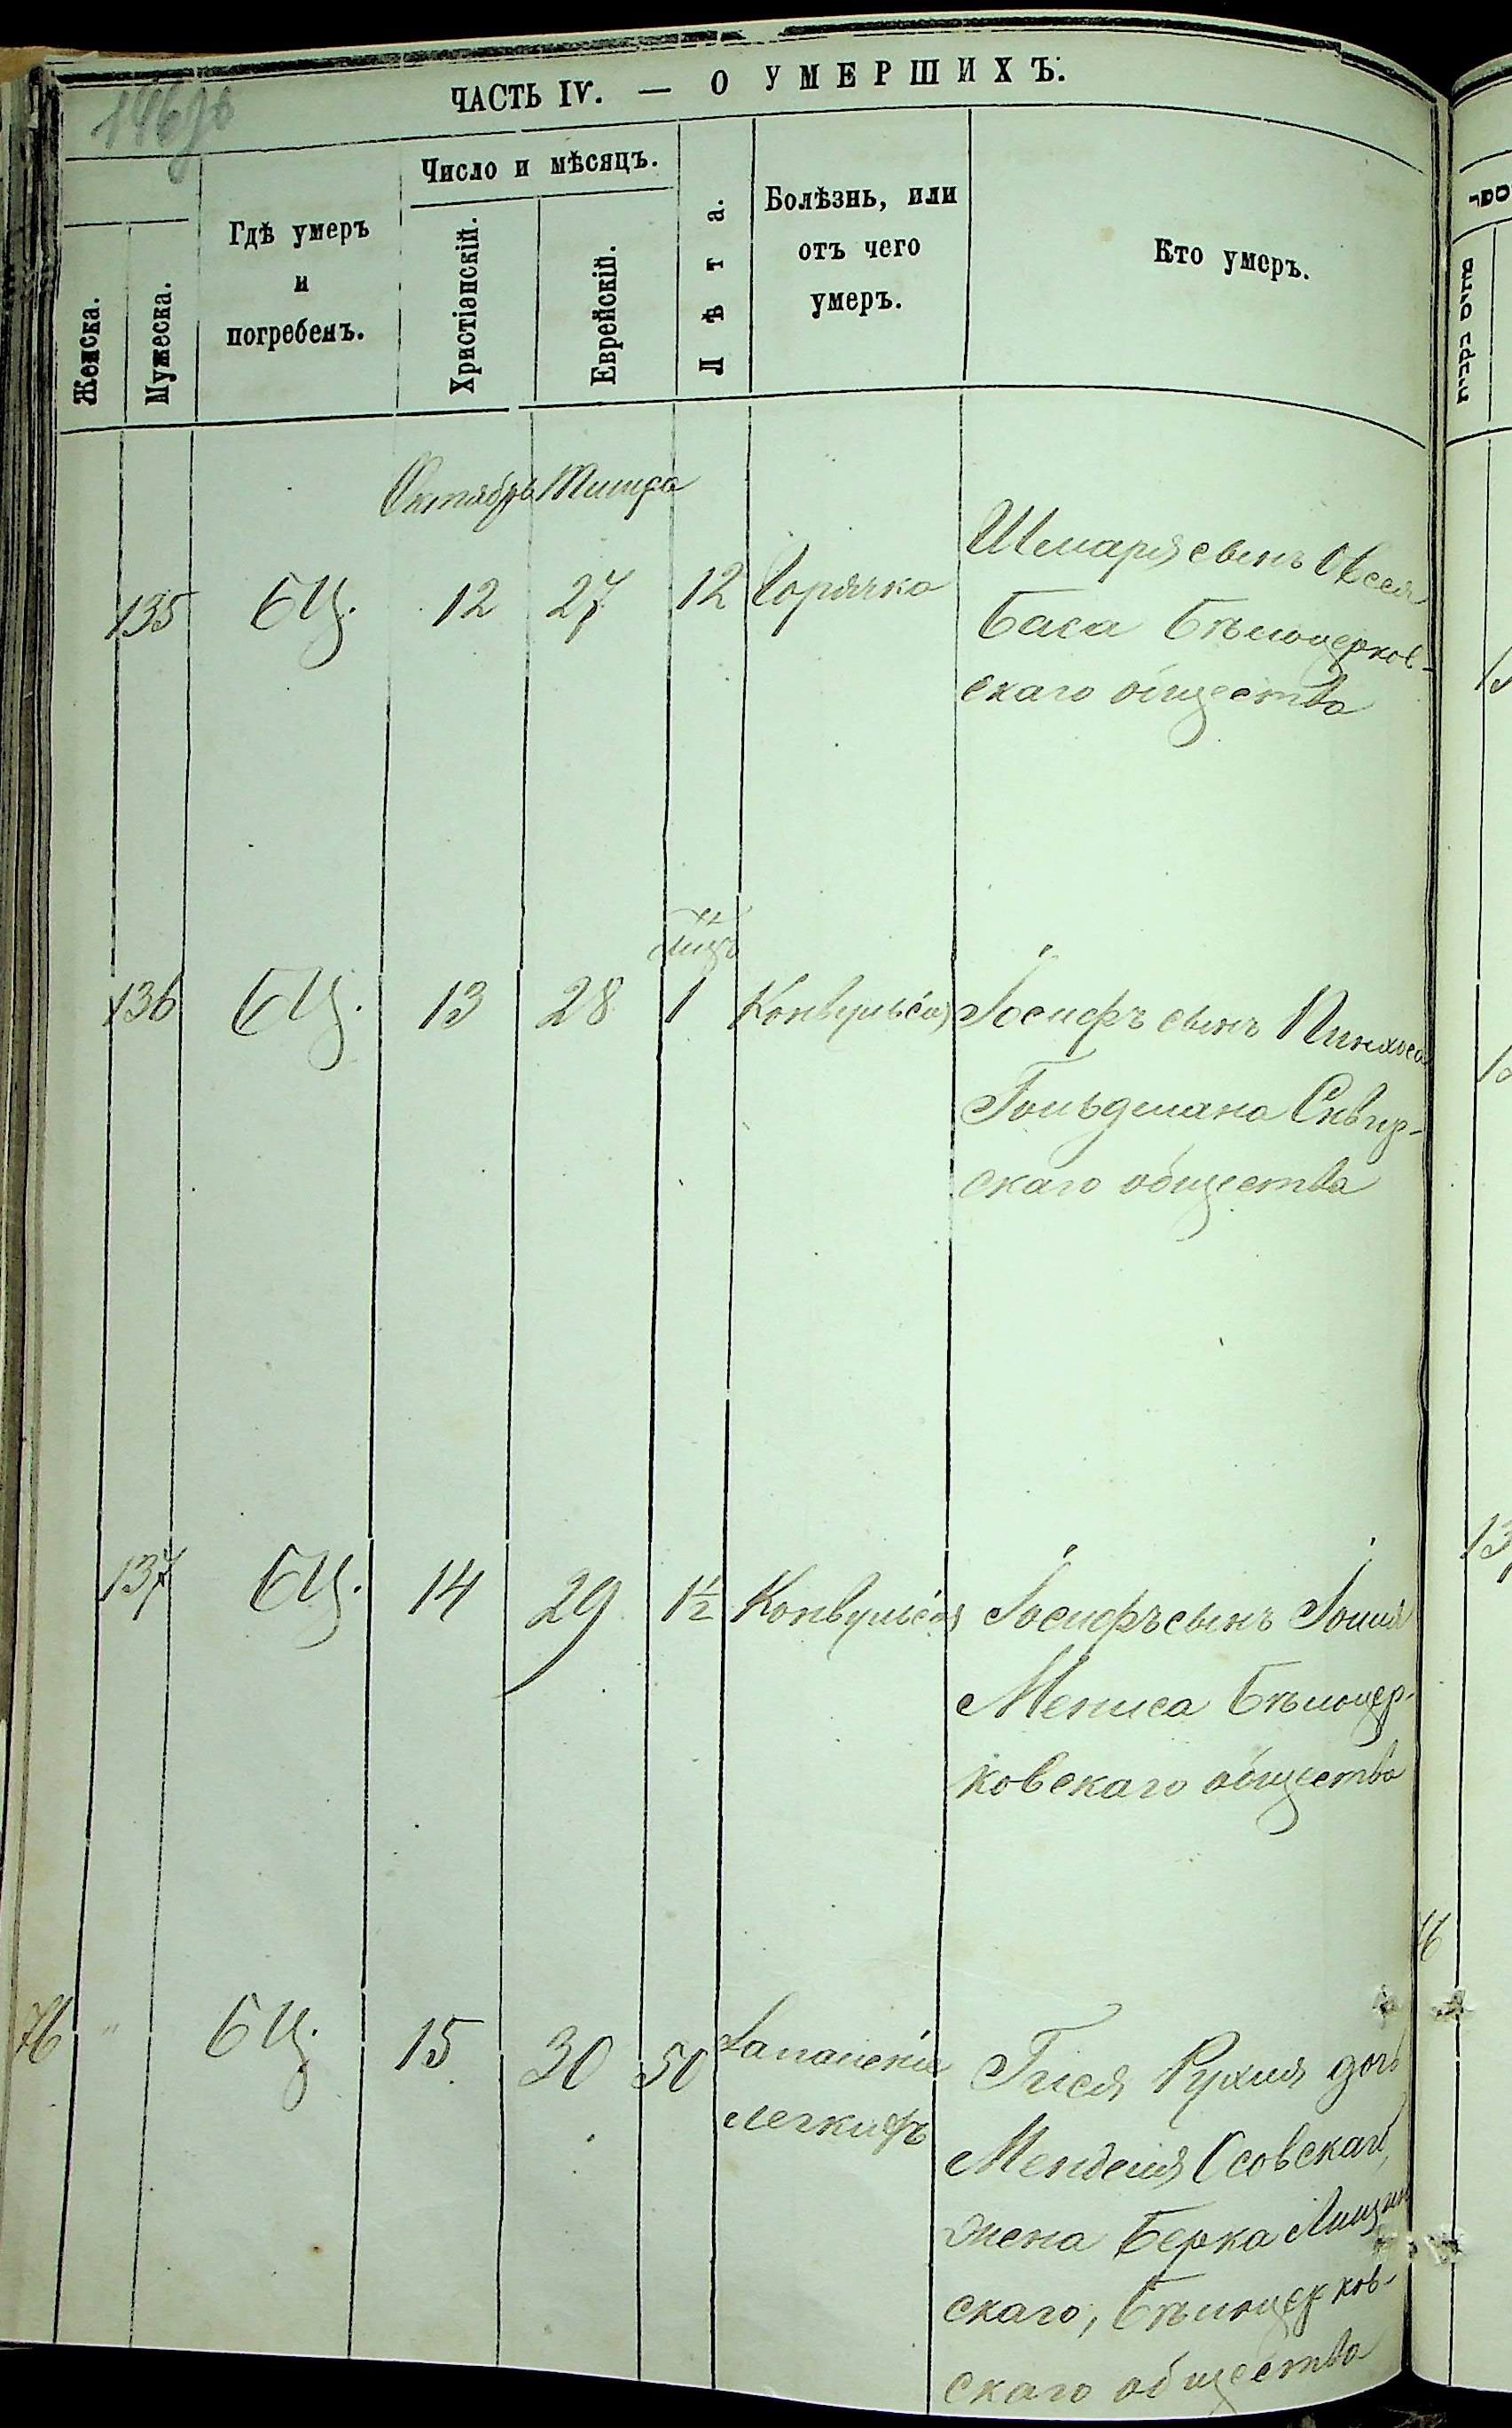 146об
ЧАСТЬ IV. — О УМЕРШИХЪ.
Женска.
Мужеска.
Гдѣ умеръ
и
погребенъ.
Число и мѣсяцъ.
Христіанскій.
Еврейскій.
Лѣта.
Болѣзнь, или
отъ чего
умеръ.
Кто умеръ.
Октябрь Тишра
135 БЦ. 12 27 12 Горячка
Шмаря сынъ Овсея
Баса Бѣлоцерков-
скаго общества
мцъ
136 БЦ. 13 28 1 Конвульсія Іосифъ сынъ Пинхоса
Гольдмана Сквир-
скаго общества
137 БЦ. 14 29 1½ Конвульсія Іосифъ сынъ
Бѣлоцер-
ковскаго общества
76 " БЦ. 15 30 50 Запаленіе
легкихъ
Гися Рухля дочь
Менделя Осовскаго,
жена Берка
скаго, Бѣлоцерков-
скаго общества